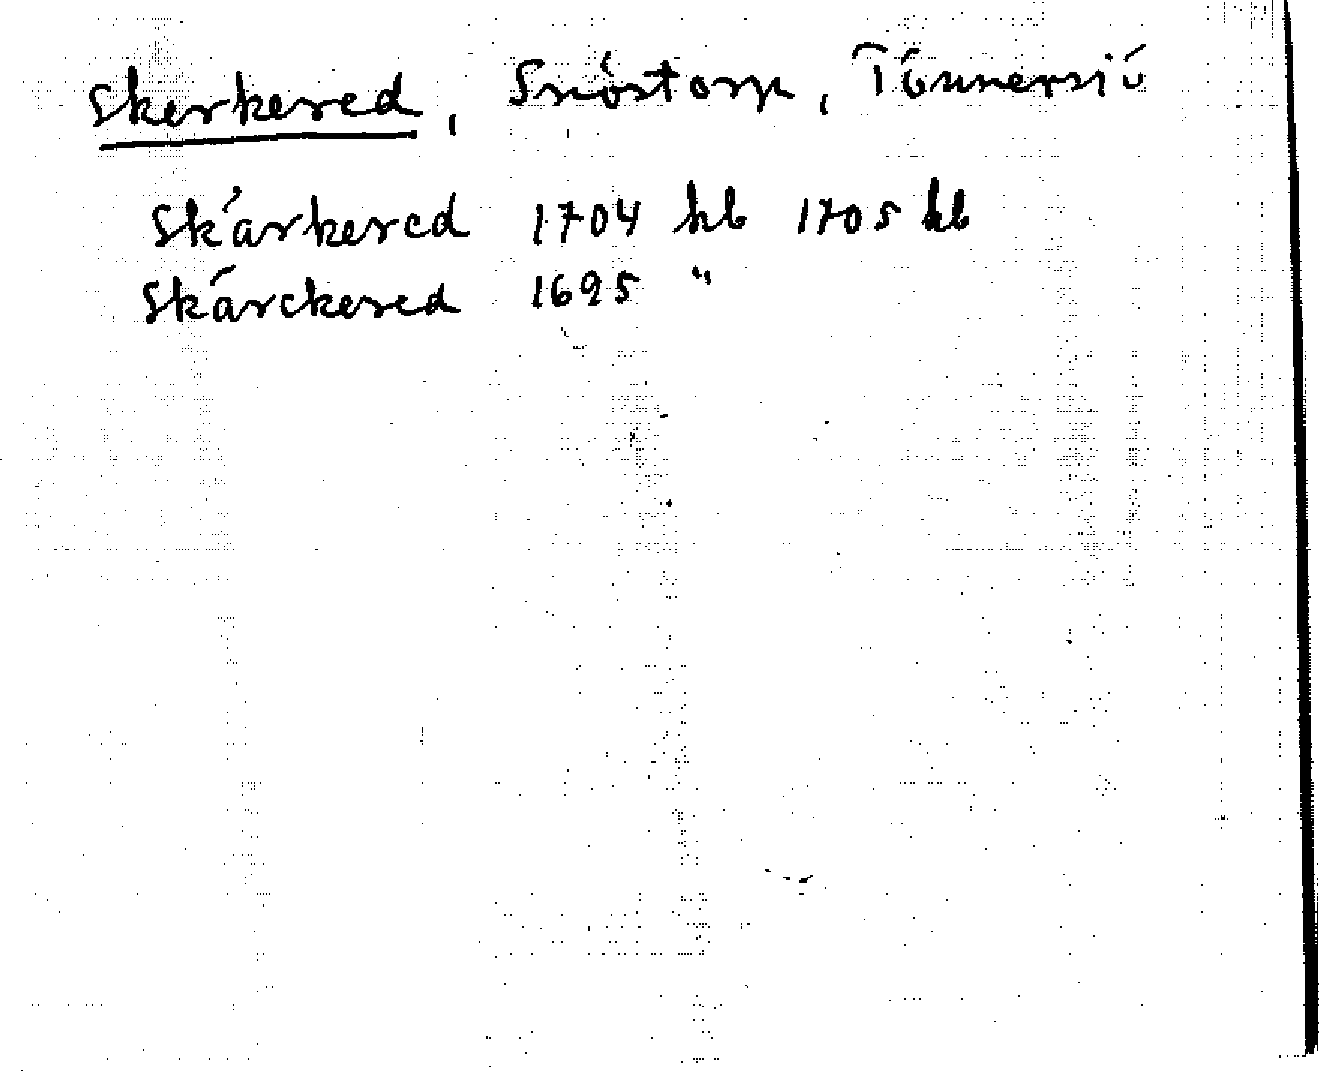 Skerkered, Snöstorp, Tönnersjö
Skärkered 1704 hb 1705 hb
Skärckered 1695 "